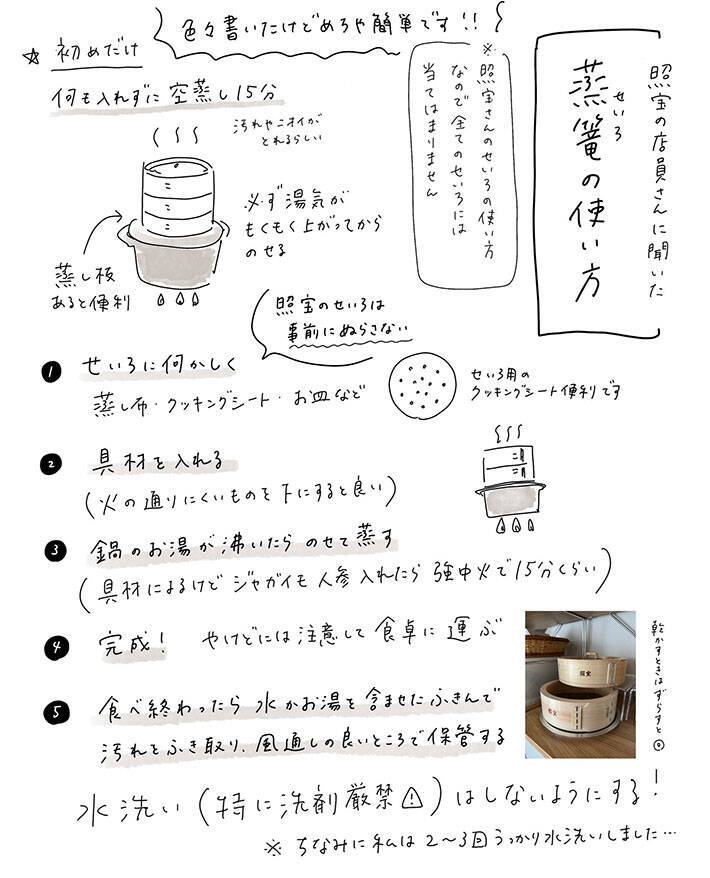 照宝の店員さんに聞いた
せいろ
蒸篭の使い方
※照宝さんのせいろの使い方
なので全てのせいろには
当てはまりません
色々書いたけどめちゃ簡単です!!
☆ 初めだけ
何も入れずに空蒸し15分
汚れやニオイが
とれるらしい
必ず湯気が
もくもく上がってから
のせる
蒸し板
あると便利
照宝のせいろは
事前にぬらさない
1 せいろに何かしく
蒸し布・クッキングシート・お皿など
せいろ用の
クッキングシート便利です
2 具材を入れる
(火の通りにくいものを下にすると良い)
3 鍋のお湯が沸いたらのせて蒸す
(具材によるけどジャガイモ人参入れたら強中火で15分くらい)
4 完成! やけどには注意して食卓に運ぶ
5 食べ終わったら水かお湯を含ませたふきんで
汚れをふき取り、風通しの良いところで保管する
乾かすときはずらすと◎
照宝
照宝
水洗い(特に洗剤厳禁⚠)はしないようにする!
※ ちなみに私は2〜3回うっかり水洗いしました…